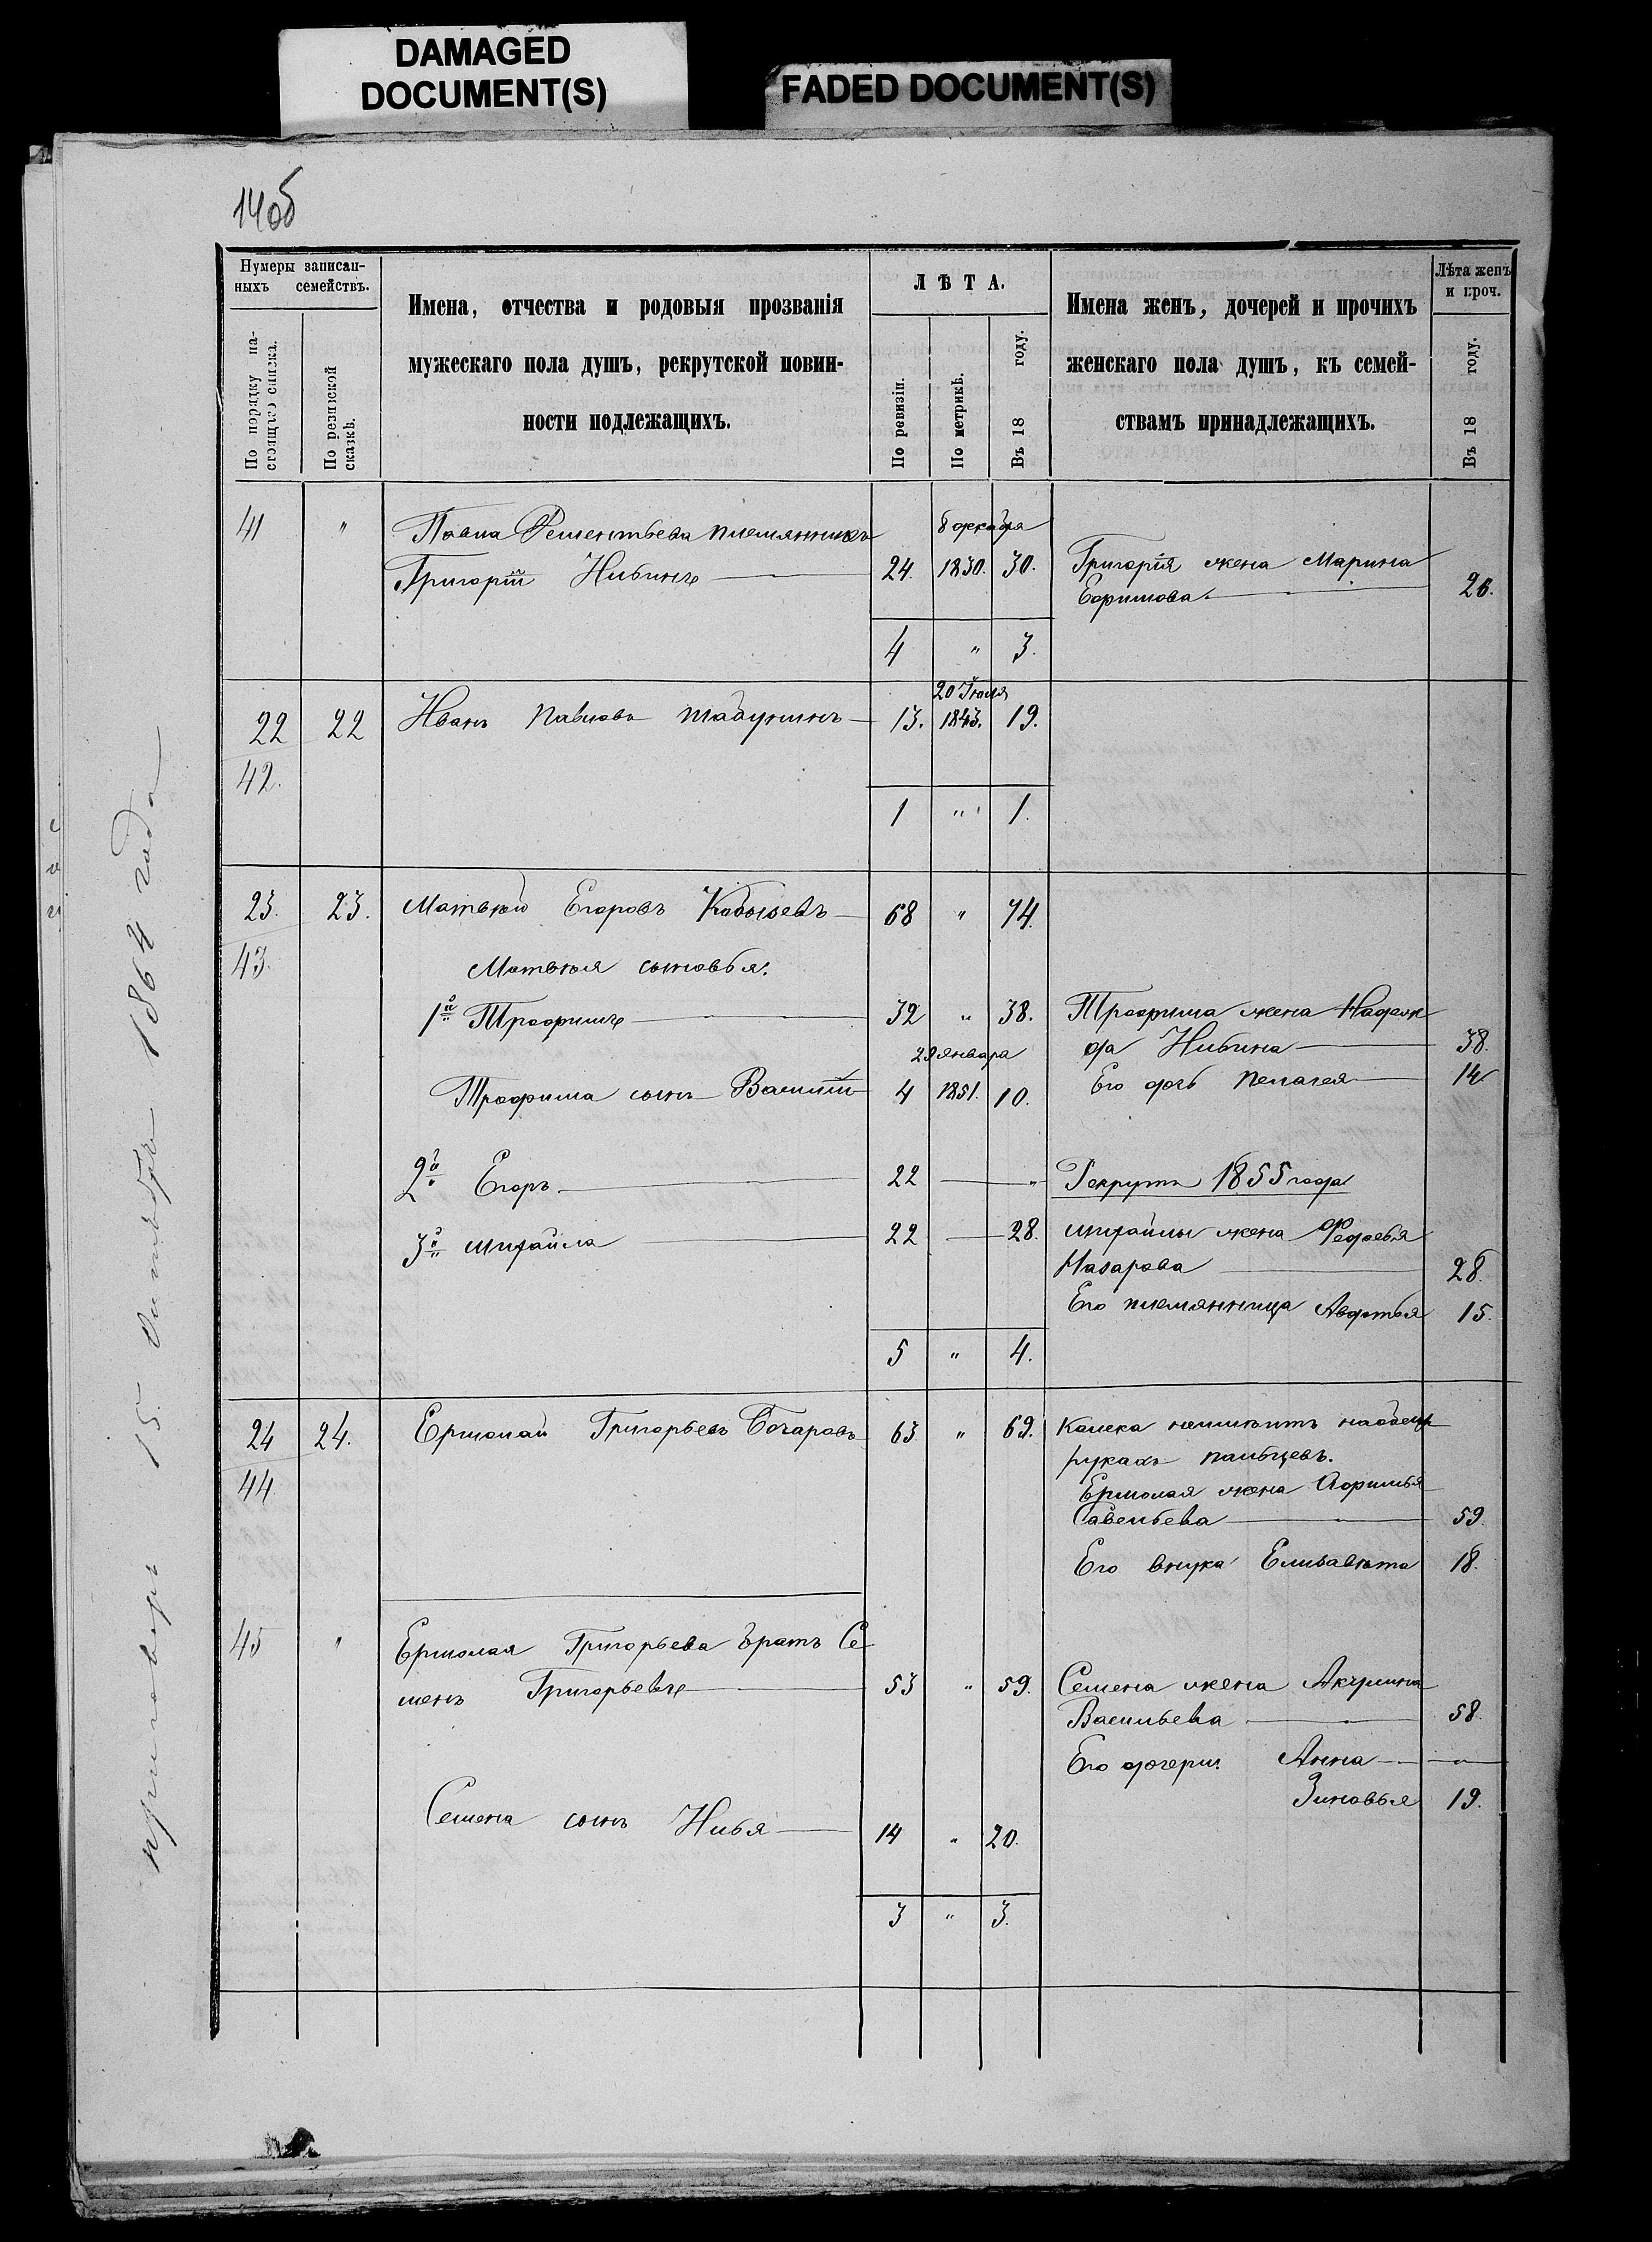 DAMAGED
DOCUMENT(S)
FADED DOCUMENT(S)
14об
Нумеры записан-
ныхъ семействъ.
По порядку на-
стоящаго списка.
По ревизской
сказкѣ.
Имена, отчества и родовыя прозванія
мужескаго пола душъ, рекрутской повин-
ности подлежащихъ.
ЛѢТА.
По ревизіи.
По метрикѣ.
Въ 18 году.
Имена женъ, дочерей и прочихъ
женскаго пола душъ, къ семей-
ствамъ принадлежащихъ.
Лѣта женъ
и проч.
Въ 18 году.
41 " Павла Дементьева племянникъ 8 декабря
Григорій Ильинъ 24. 1830. 30. Григорія жена Марина
Ефимова. 26.
4 " 3.
20 Іюля
22 22 Иванъ Павловъ Табунинъ 13. 1843. 19.
42.
1 " 1.
23. 23. Матвѣй Егоровъ Кобызевъ 68 " 74.
43. Матвѣя сыновья.
1й Трофимъ 32 " 38. Трофима жена Надеж
да Ильина 38.
29 января
Его дочь Пелагея 14
Трофима сынъ Василій 4 1851. 10.
2й Егоръ 22 " Рекрутъ 1855 года
3й Михайла 22 28. Михайлы жена Федосья
Назарова 28.
Его племянница Авдотья 15.
5 " 4.
24 24. Ермолай Григорьевъ Бочаровъ 63 " 69. Калека неимѣитъ наобеихъ
рукахъ пальцевъ.
44 Ермолая жена Афимья
Савельева 59.
Его внука Елизавѣта 18.
45 " Ермолая Григорьева братъ Се
менъ Григорьевъ 53 " 59. Семена жена Акулина
Васильева 58.
Его дочери: Анна "
Зиновья 19.
Семена сынъ Илья 14 " 20.
3 " 3.
приговоръ 15 Октября 1864 года